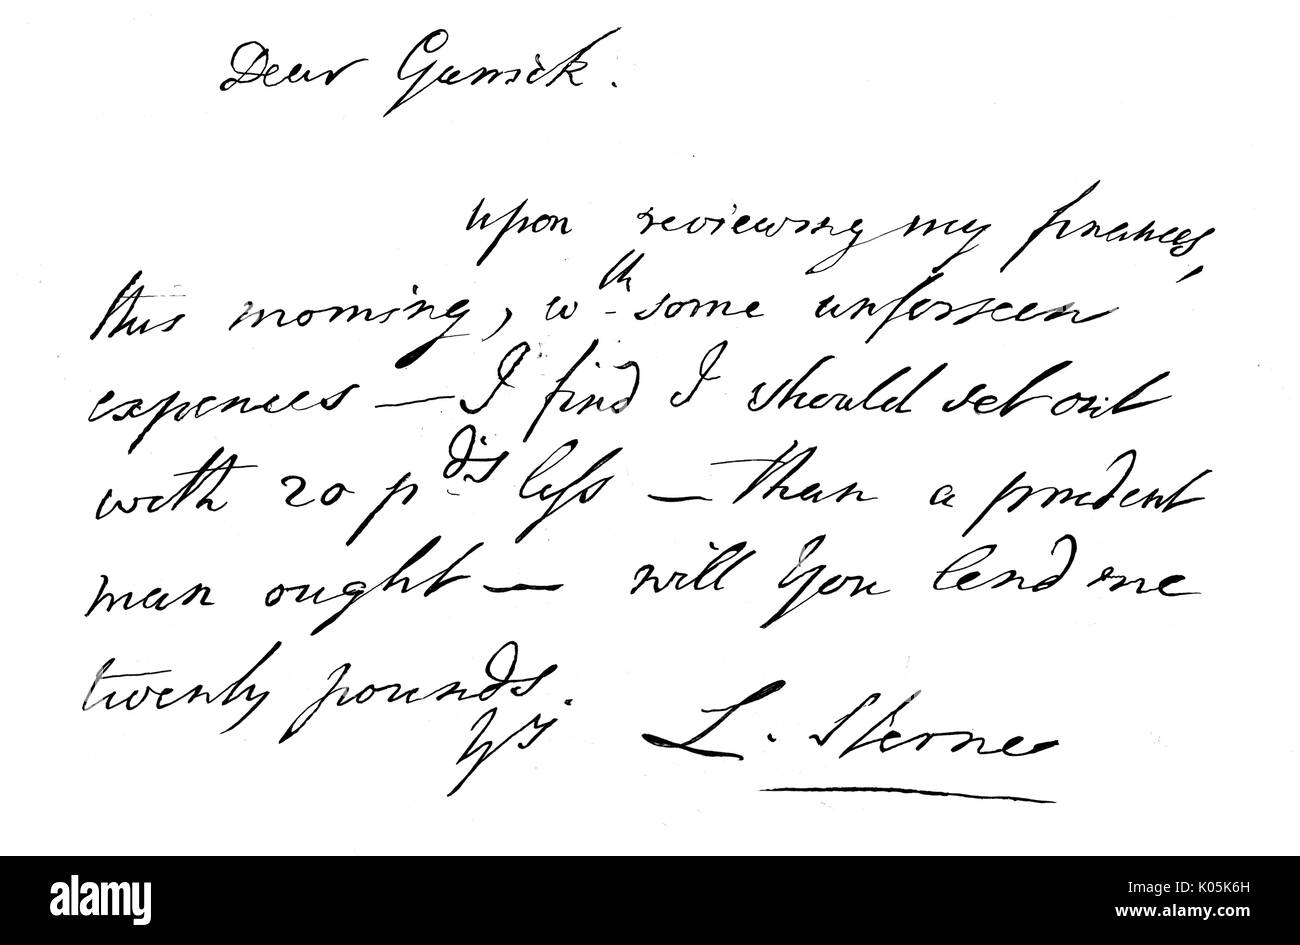 Dear Garrick.
upon reviewing my finances,
this morning, wth some unforseen
expences — I find I should set out
with 20 pds less — than a prudent
man ought — will You lend me
twenty pounds.
Yrs L. Sterne
alamy
Image ID: K05K6H
www.alamy.com